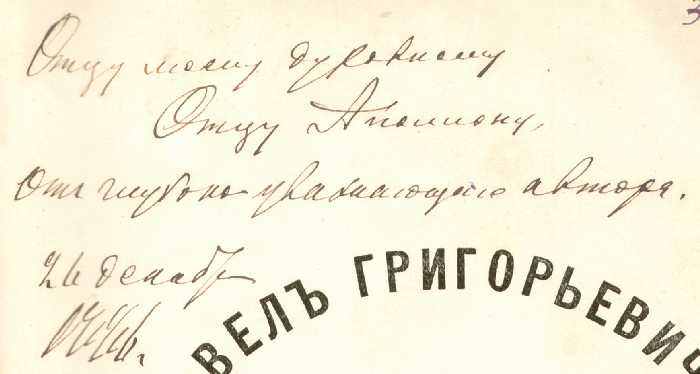 Отцу моему духовному
Отцу Аполлону,
отъ глубоко уважающаго автора.
26 декабр
ВЕЛЪ ГРИГОРЬЕВИЧ